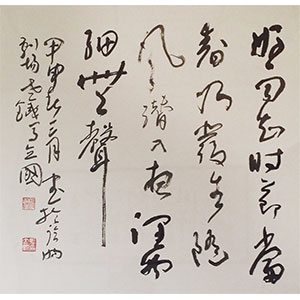 好雨知时節當
春乃發生隨
風潛入夜潤物
細無聲
甲申三月書於
立國